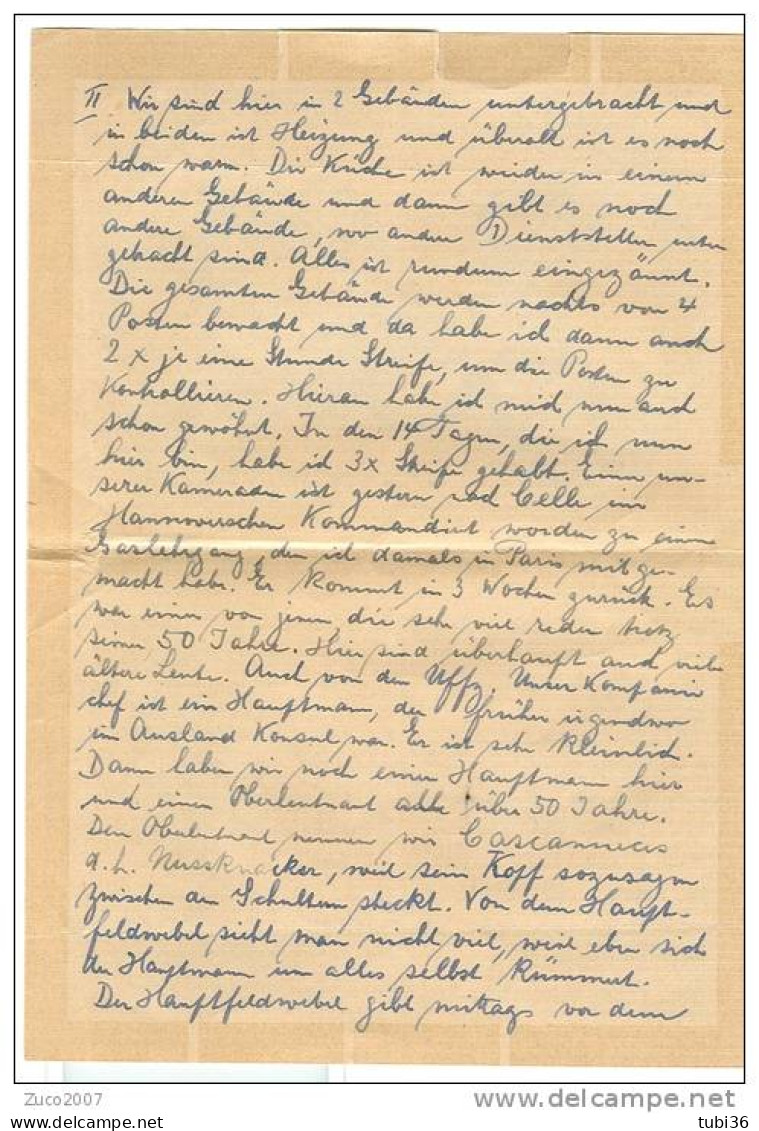 II Wir sind hier in 2 Gebäuden untergebracht und
in beiden ist Heizung und überall ist es noch
schön warm. Die Küche ist wieder in einem
anderen Gebäude und dann gibt es noch
andere Gebäude, wo andere Dienststellen unter
gebracht sind. Alles ist rundum eingezäunt.
Die gesamten Gebäude werden nachts von 4
Posten bewacht und da habe ich dann auch
2 x je eine Stunde Streife, um die Posten zu
Kontrollieren. Hieran habe ich mich nun auch
schon gewöhnt. In den 14 Tagen, die ich nun
hier bin, habe ich 3x Streife gehabt. Einer un-
serer Kameraden ist gestern nach Celle im
Hannoverschen Kommandiert worden zu einem
Gaslehrgang, den ich damals in Paris mitge-
macht habe. Er kommt in 3 Wochen zurück. Es
war einer von jenen, die sehr viel reden trotz
seiner 50 Jahre. Hier sind überhaupt auch viele
ältere Leute. Auch von den Uffz. Unser Kompanie
chef ist ein Hauptmann, der früher irgendwo
im Ausland Konsul war. Er ist sehr Kleinlich.
Dann haben wir noch einen Hauptmann hier
und einen Oberleutnant alle über 50 Jahre.
Den Oberleutnant nennen wir
d.h. Nussknacker, weil sein Kopf sozusagen
zwischen den Schultern steckt. Von dem Haupt-
feldwebel sieht man nicht viel, weil eben sich
der Hauptmann um alles selbst Kümmert.
Der Hauptfeldwebel gibt mittags vor dem
Zuco2007
www.delcampe.net
tubi36